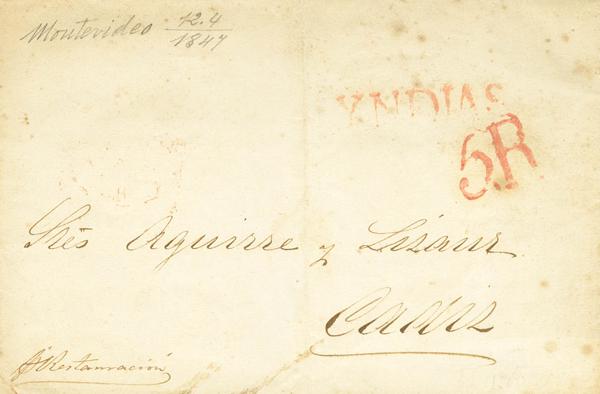 Montevideo 12.4
1847
YNDIAS
5R
Sres Aguirre y
Cadiz
Restauración